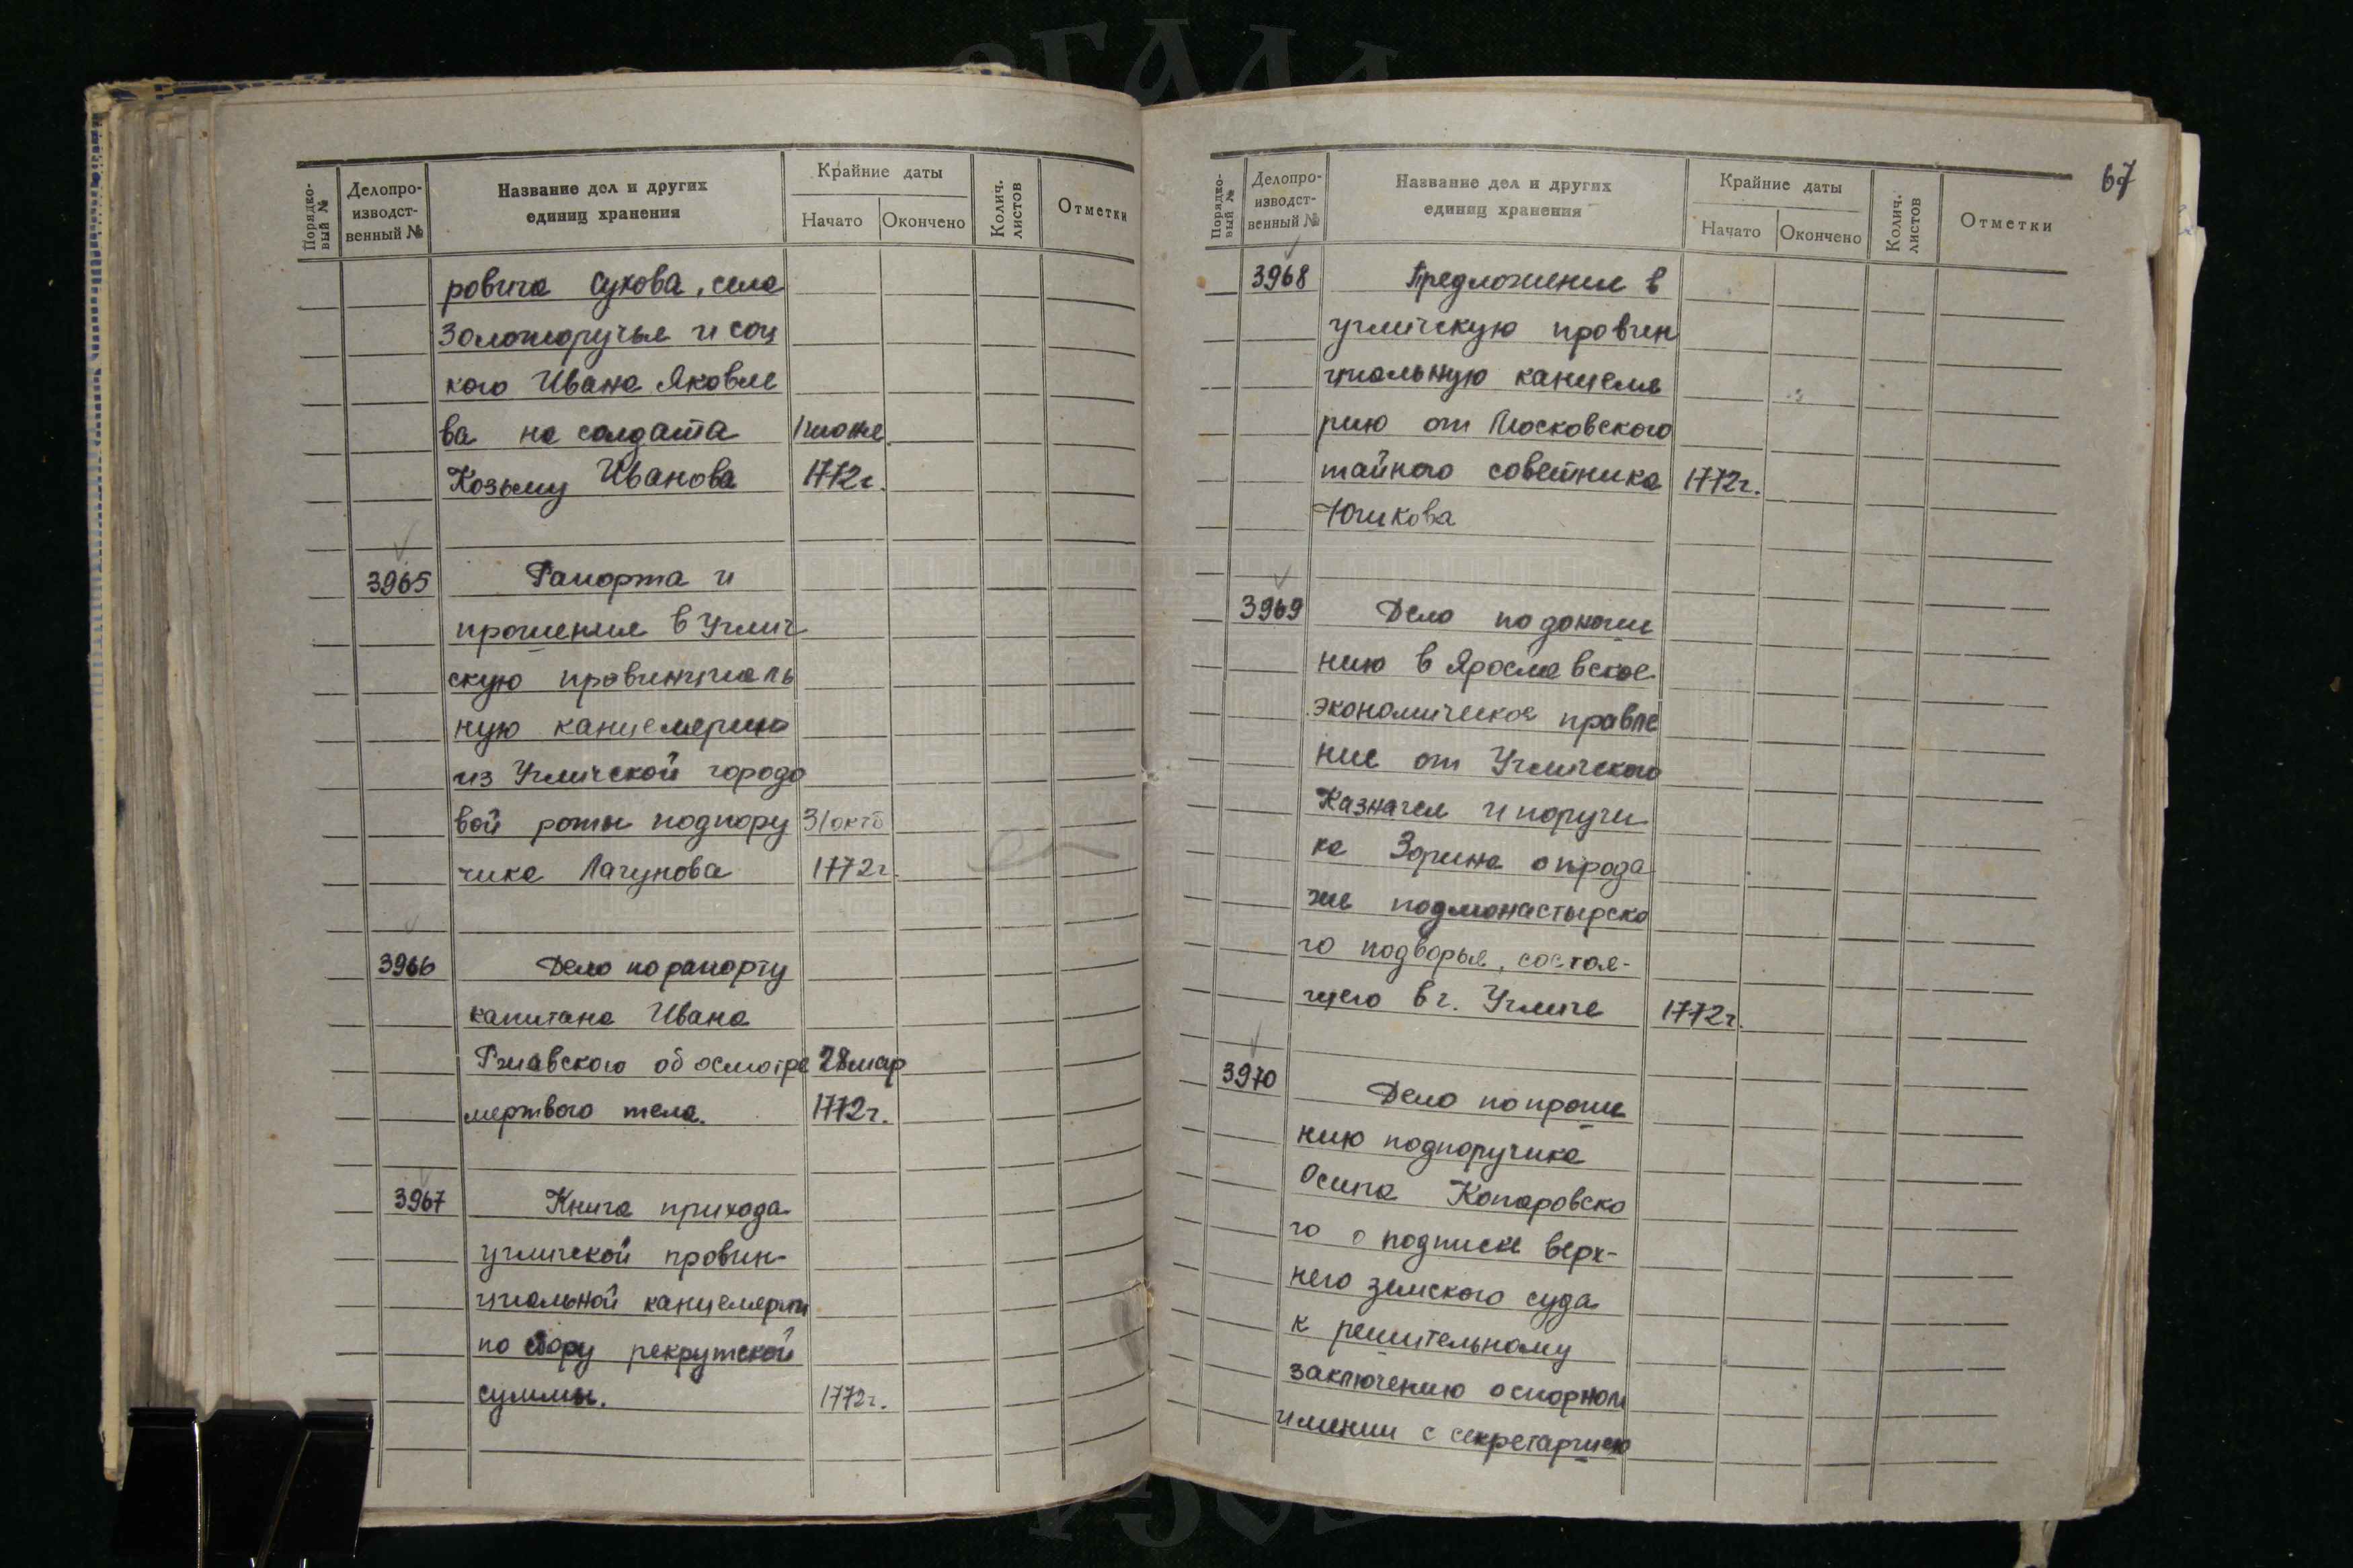 Порядко-
вый №
Делопро-
изводст-
венный №
Название дел и других
единиц хранения
Крайние даты
Начато
Окончено
Колич.
листов
Отметки
ровича Сухова, села
Золоторучья и соц
кого Ивана Яковле
ва на солдата 1 июня
Козьму Иванова 1772г.
3965 Рапорта и
прошения в Углич
скую провинциаль
ную канцелярию
из Угличской городо
вой роты подпору 31 октб
чика Лагунова 1772г.
3966 Дело по рапорту
капитана Ивана
Ржавского об осмотре 28 мар
мертвого тела. 1772г.
3967 Книга прихода
угличской провин-
циальной канцелярии
по сбору рекрутской
суммы. 1772г.
67
Порядко-
вый №
Делопро-
изводст-
венный №
Название дел и других
единиц хранения
Крайние даты
Начато
Окончено
Колич.
листов
Отметки
3968 Предложение в
угличскую провин
циальную канцеля
рию от Московского
тайного советника 1772г.
Юшкова
3969 Дело по доноше
нию в Ярославское
экономическое правле
ние от Угличского
Казначея и поручи
ка Зорина о прода
же подмонастырско
го подворья, состоя-
щего в г. Угличе 1772г.
3970 Дело по проше
нию подпоручика
Осипа Комаровско
го о подписке верх-
него земского суда
к решительному
заключению о спорном
имении с секретаршею